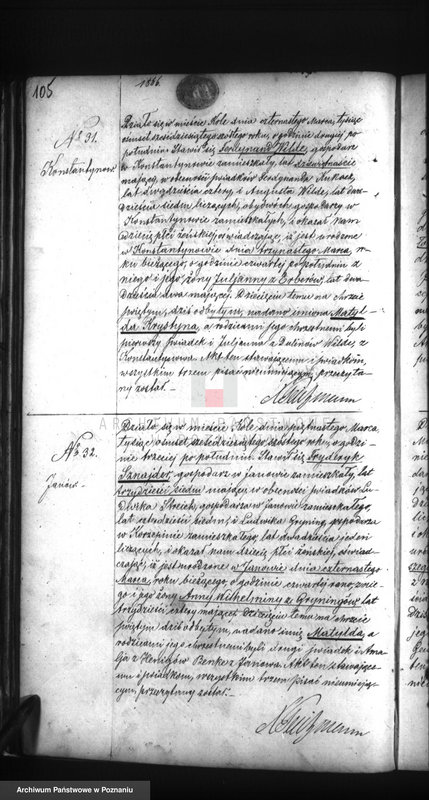 105
1866.
No 31.
Konstantynow
Działo się w mieście Kole dnia czternastego Marca, tysiąc
ośmset sześćdziesiątego szóstego roku, o godzinie drugiej po
południu. Stawił się Ferdynand Wilde, gospodarz
w Konstantynowie zamieszkały, lat
mający, w obecności świadków Ferdynanda
lat dwadzieścia cztery, i Augusta Wilde, lat
dwadzieścia siedm liczących, obydwóch gospodarzy w
Konstantynowie zamieszkałych, i okazał nam
dziecię płci żeńskiej, oświadczając, iż jest urodzone
w Konstantynowie dnia trzynastego Marca, ro-
ku bieżącego, o godzinie czwartej po południu z
niego i jego żony Juljanny z lat dwa-
dzieścia dwa mającej. Dziecięciu temu na chrzcie
świętym, dziś odbytym, nadano imiona Matyl-
da Krystyna, a rodzicami jego chrzestnemi byli
pierwszy świadek i Juljanna z Wilde, z
Konstantynowa. Akt ten stawającemu i świadkom,
wszystkim trzem pisać nieumiejącym, przeczyta-
ny został. –
No 32.
Janów.
Działo się w mieście Kole dnia piętnastego Marca
tysiąc ośmset sześćdziesiątego szóstego roku, o godzi-
nie trzeciej po południu. Stawił się Frydryk
Sznajder, gospodarz w Janowie zamieszkały, lat
trzydzieści siedm mający, w obecności świadków Lu-
dwika gospodarza w Janowie zamieszkałego,
lat czterdzieści siedm, i Ludwika Gryning, gospodarza
w zamieszkałego, lat dwadzieścia jeden
liczących, i okazał nam dziecię płci żeńskiej, oświad-
czając, iż jest urodzone w Janowie dnia czternastego
Marca, roku bieżącego, o godzinie czwartej rano, z nie-
go i jego żony Anny Wilhelminy z Gryningów, lat
trzydzieści cztery mającej. Dziecięciu temu na chrzcie
świętym, dziś odbytym, nadano imię Matylda, a
rodzicami jego chrzestnemi byli drugi świadek i Ama-
lja z Benke z Janowa. Akt ten stawające-
mu i świadkom, wszystkim trzem pisać nieumieją-
cym, przeczytany został. –
Archiwum Państwowe w Poznaniu